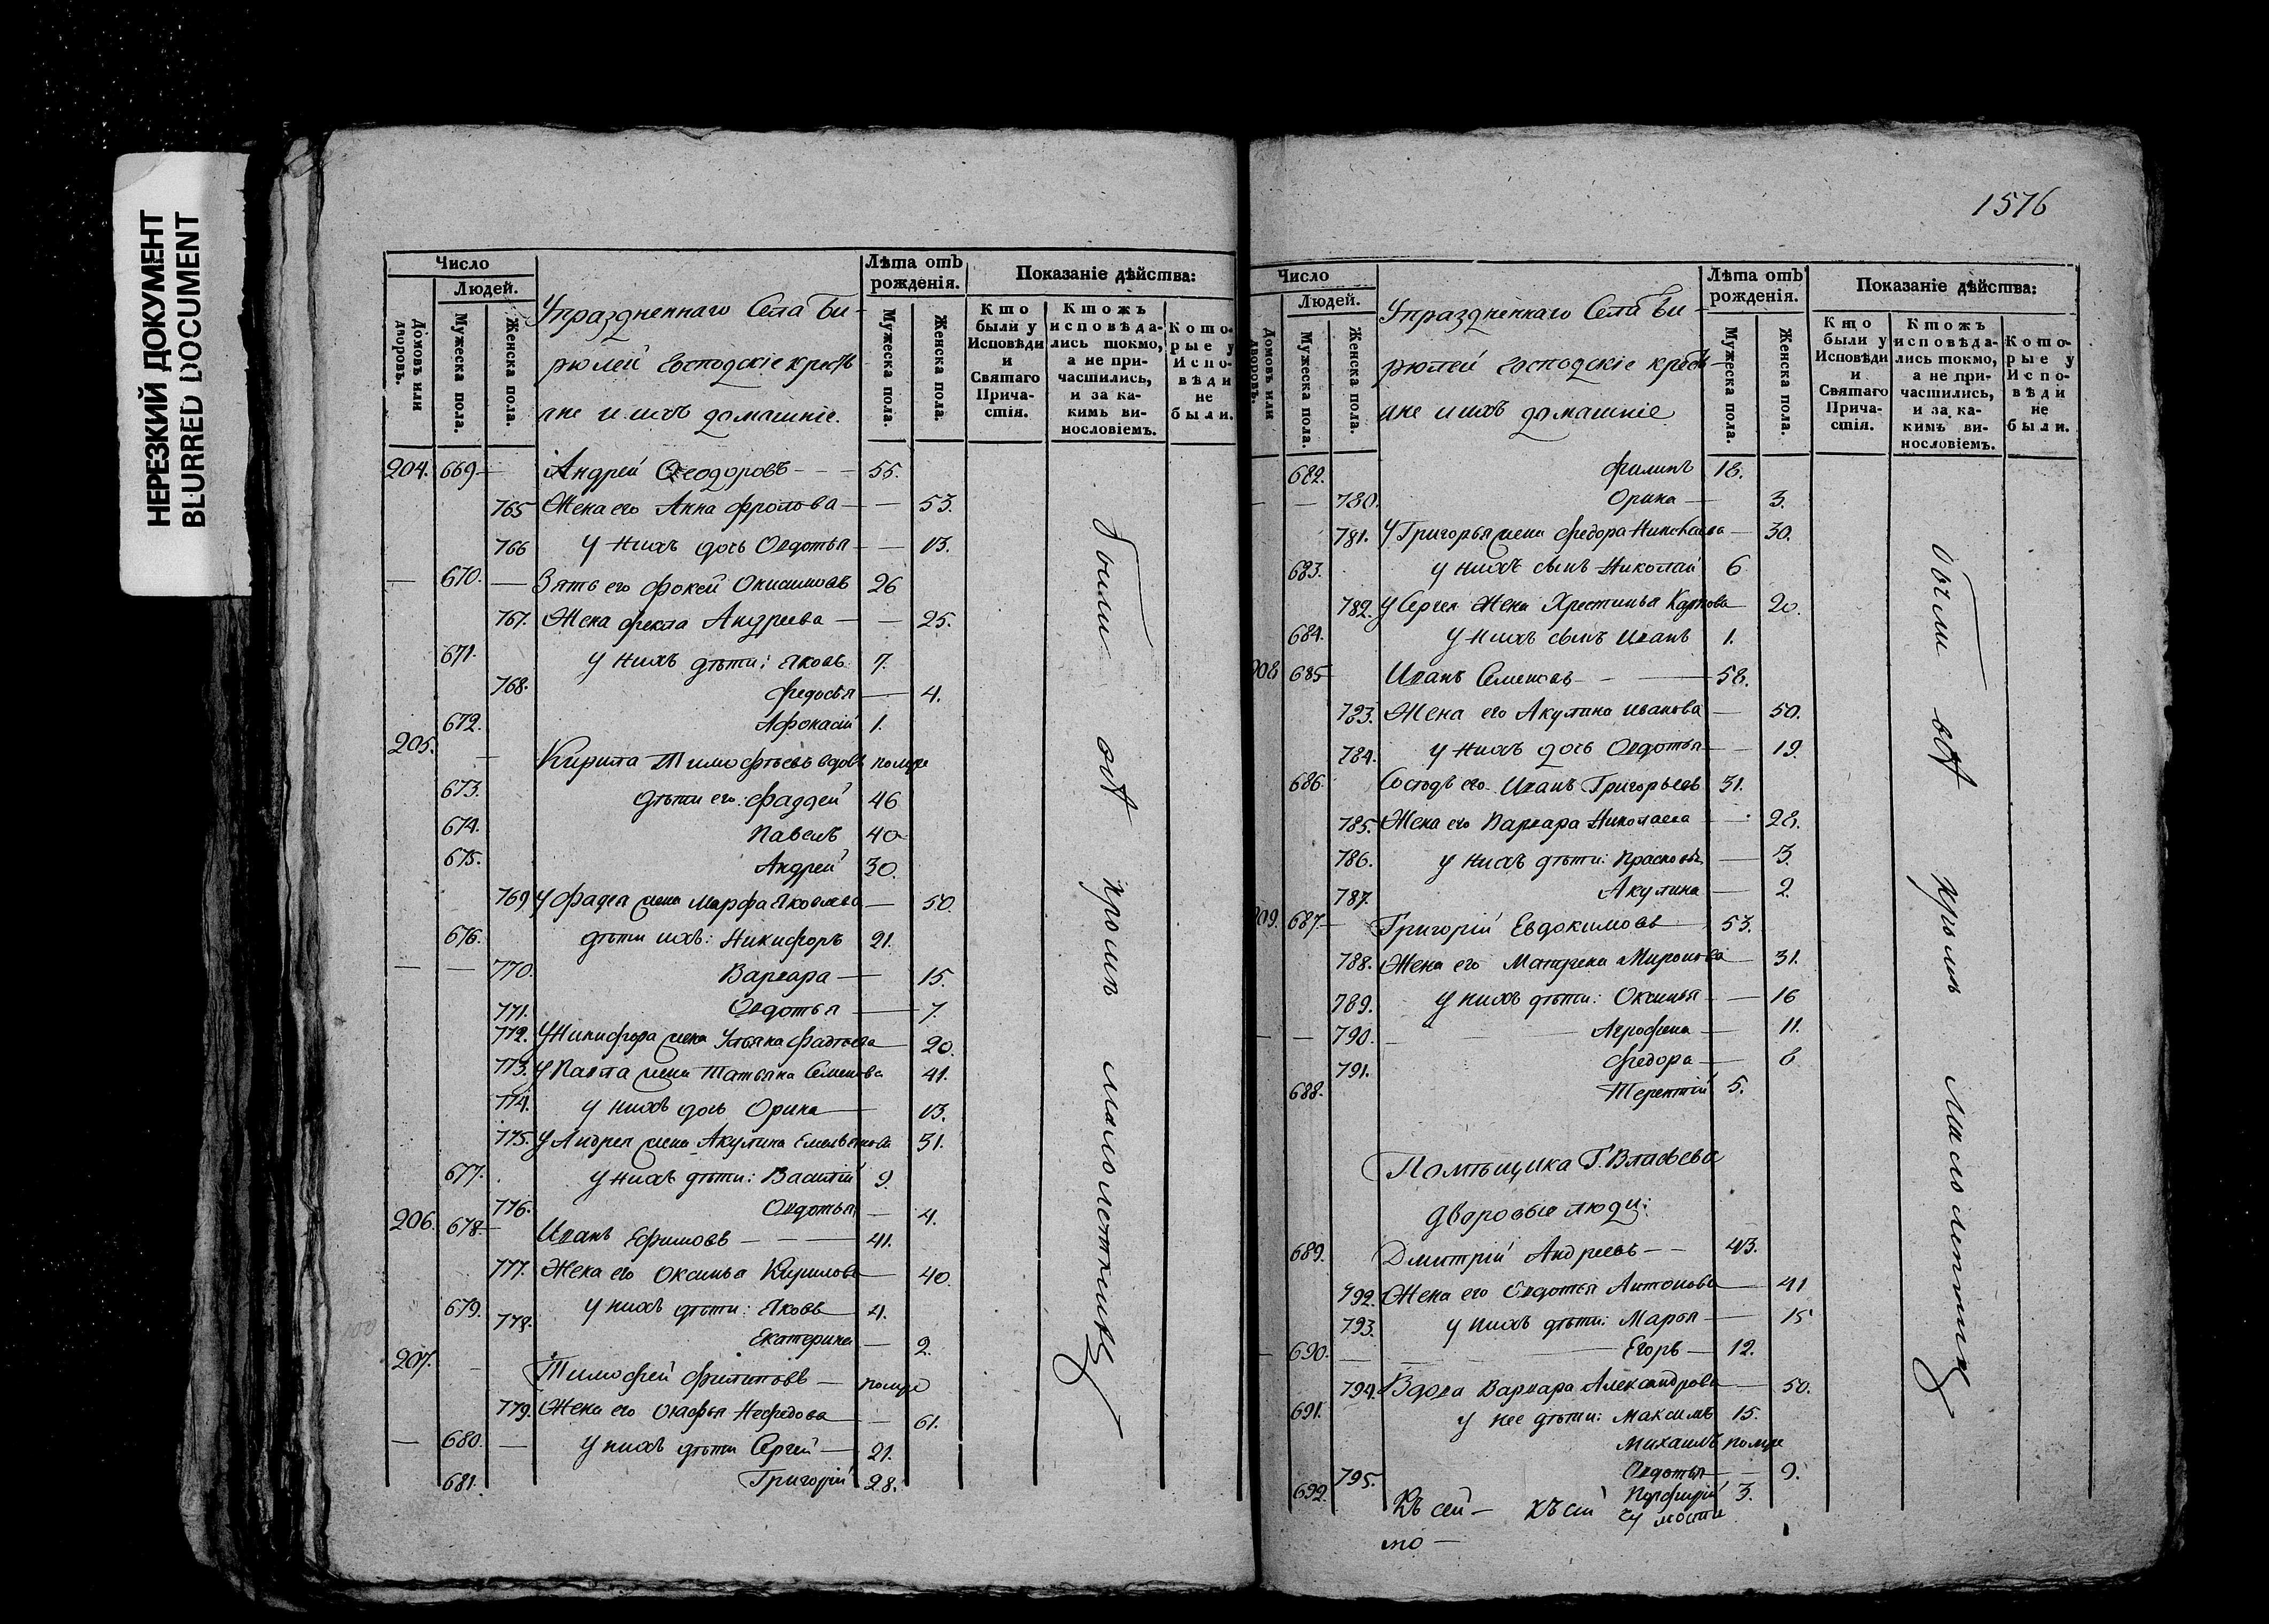 НЕРЕЗКИЙ ДОКУМЕНТ
BLURRED DOCUMENT
Число
Людей.
Домовъ или дворовъ.
Мужеска пола.
Женска пола.
Упраздненнаго Села Би-
рюлей господскіе кресть-
яне и ихъ домашніе.
Лѣта отъ рожденія.
Мужеска пола.
Женска пола.
Показаніе дѣйства:
Кто были у Исповѣди и Святаго Прича-стія.
Ктожъ исповѣда-лись токмо, а не при-частились, и за ка-кимъ ви-нословіемъ.
Кото-рые у Испо-вѣди не были.
204. 669 Андрей Ѳеодоровъ 55.
765 Жена его Анна Фролова 53.
766 у нихъ дочь Овдотья 13.
670. Зять его Фокей Онисимовъ 26
767. Жена Фекла Андреева 25.
671. у нихъ дѣти: Яковъ 7.
768. Федосья 4.
672. Афонасій 1.
205. Кирила Тимофѣевъ вдовъ помре
673. Дѣти его: Фаддей 46
674. Павелъ 40
675. Андрей 30.
769 У Фадея жена Марфа Яковлева 50.
676. дѣти ихъ: Никифоръ 21.
770. Варвара 15.
771. Овдотья 7.
772. У Никифора жена Ульяна 20.
773. У Павла жена Татьяна Семенова 41.
774. у нихъ дочь Орина 13.
775. У Андрея жена Акулина Емельянова 31.
677. у нихъ дѣти: Василій 9.
776. Овдотья 4.
206. 678 Иванъ Ефимовъ 41.
777. Жена его Оксинья Кирилова 40.
679. у нихъ дѣти: Яковъ 4.
778. Екатерина 2.
207. Тимофей Филиповъ помре
779. Жена его Нефедова 61.
680. у нихъ дѣти Сергей 21.
681. Григорій 28.
были всѣ кромѣ малолетнихъ
1576
Число
Людей.
Домовъ или дворовъ.
Мужеска пола.
Женска пола.
Упраздненнаго Села Би-
рюлей господскіе кресть-
яне и ихъ домашніе
Лѣта отъ рожденія.
Мужеска пола.
Женска пола.
Показаніе дѣйства:
Кто были у Исповѣди и Святаго Прича-стія.
Ктожъ исповѣда-лись токмо, а не при-частились, и за ка-кимъ ви-нословіемъ.
Кото-рые у Испо-вѣди не были.
682. Филипъ 18.
780. Орина 3.
781. У Григорья жена Федора Николаева 30.
683. у нихъ сынъ Николай 6
782. У Сергея жена Хрестинья Карпова 20.
684. у нихъ сынъ Иванъ 1.
208 685 Иванъ Семеновъ 58.
783. Жена его Акулина Иванова 50.
784. у нихъ дочь Овдотья 19.
686. Сосѣдъ его Иванъ Григорьевъ 31.
785. Жена его Варвара Николаева 28.
786. у нихъ дѣти: Прасковья 3.
787. Акулина 2.
209. 687. Григорій Евдокимовъ 53.
788. Жена его Матрена Миронова 31.
789. у нихъ дѣти: Оксинья 16
790. Агрофена 11.
791. Федора 6.
688. Терентій 5.
Помѣщика Г. Власьева
Дворовые люди:
689. Дмитрій Андреевъ 43.
792. Жена его Евдотья Антонова 41
793. у нихъ дѣти: Марья 15
690. Егоръ 12.
794. Вдова Варвара Александрова 50.
691. у нее дѣти: Максимъ 15.
Михаилъ помре
795. Овдотья 9.
692. Порфирій 3.
Къ сей къ сей
то
были всѣ кромѣ малолетнихъ